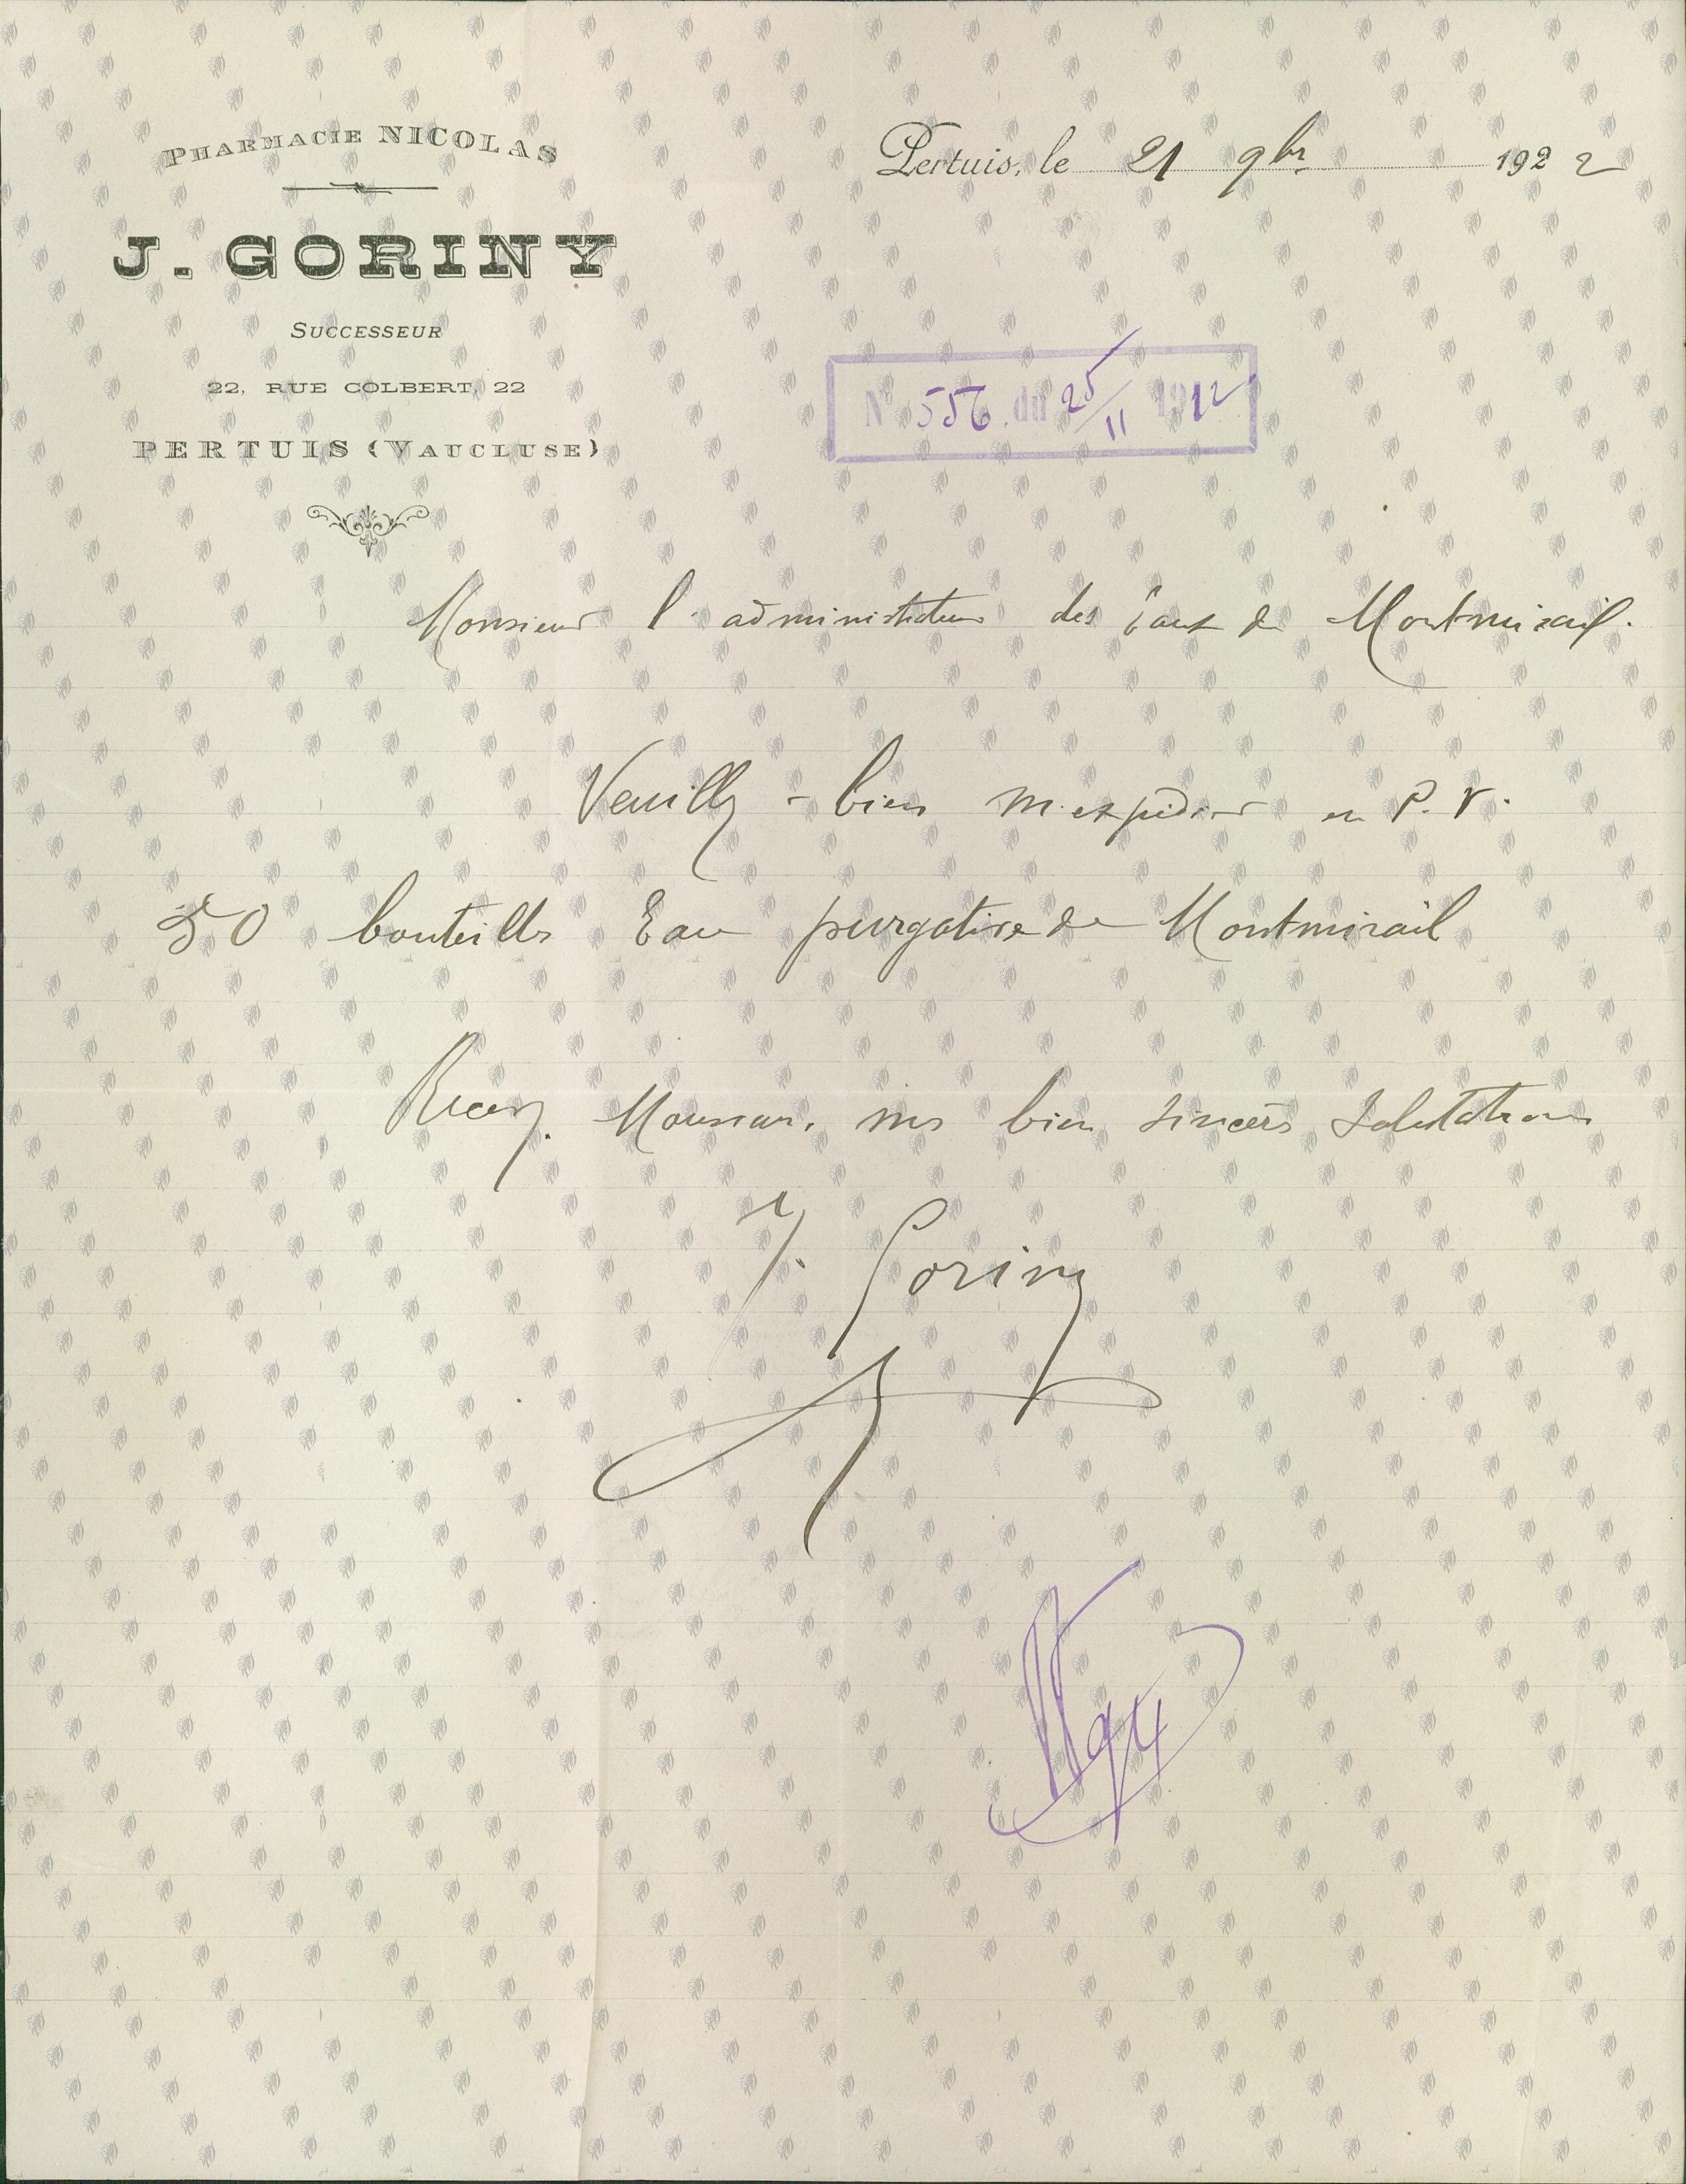 PHARMACIE NICOLAS
J. GORINY
SUCCESSEUR
22, RUE COLBERT, 22
PERTUIS (VAUCLUSE)
Pertuis, le 21 9bre 1922
N° 556 du 25/11 1922
Monsieur l'administrateur des Eaux de Montmirail.
Veuillez bien m'expédier en P. V.
50 bouteilles Eau purgative de Montmirail
Recevez, Monsieur, mes bien sincères salutations
J. Goriny